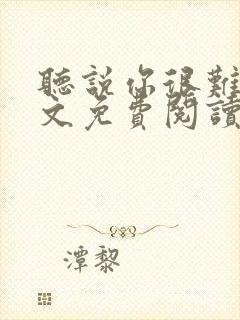 聽說你很難
文免費閱讀
潭黎